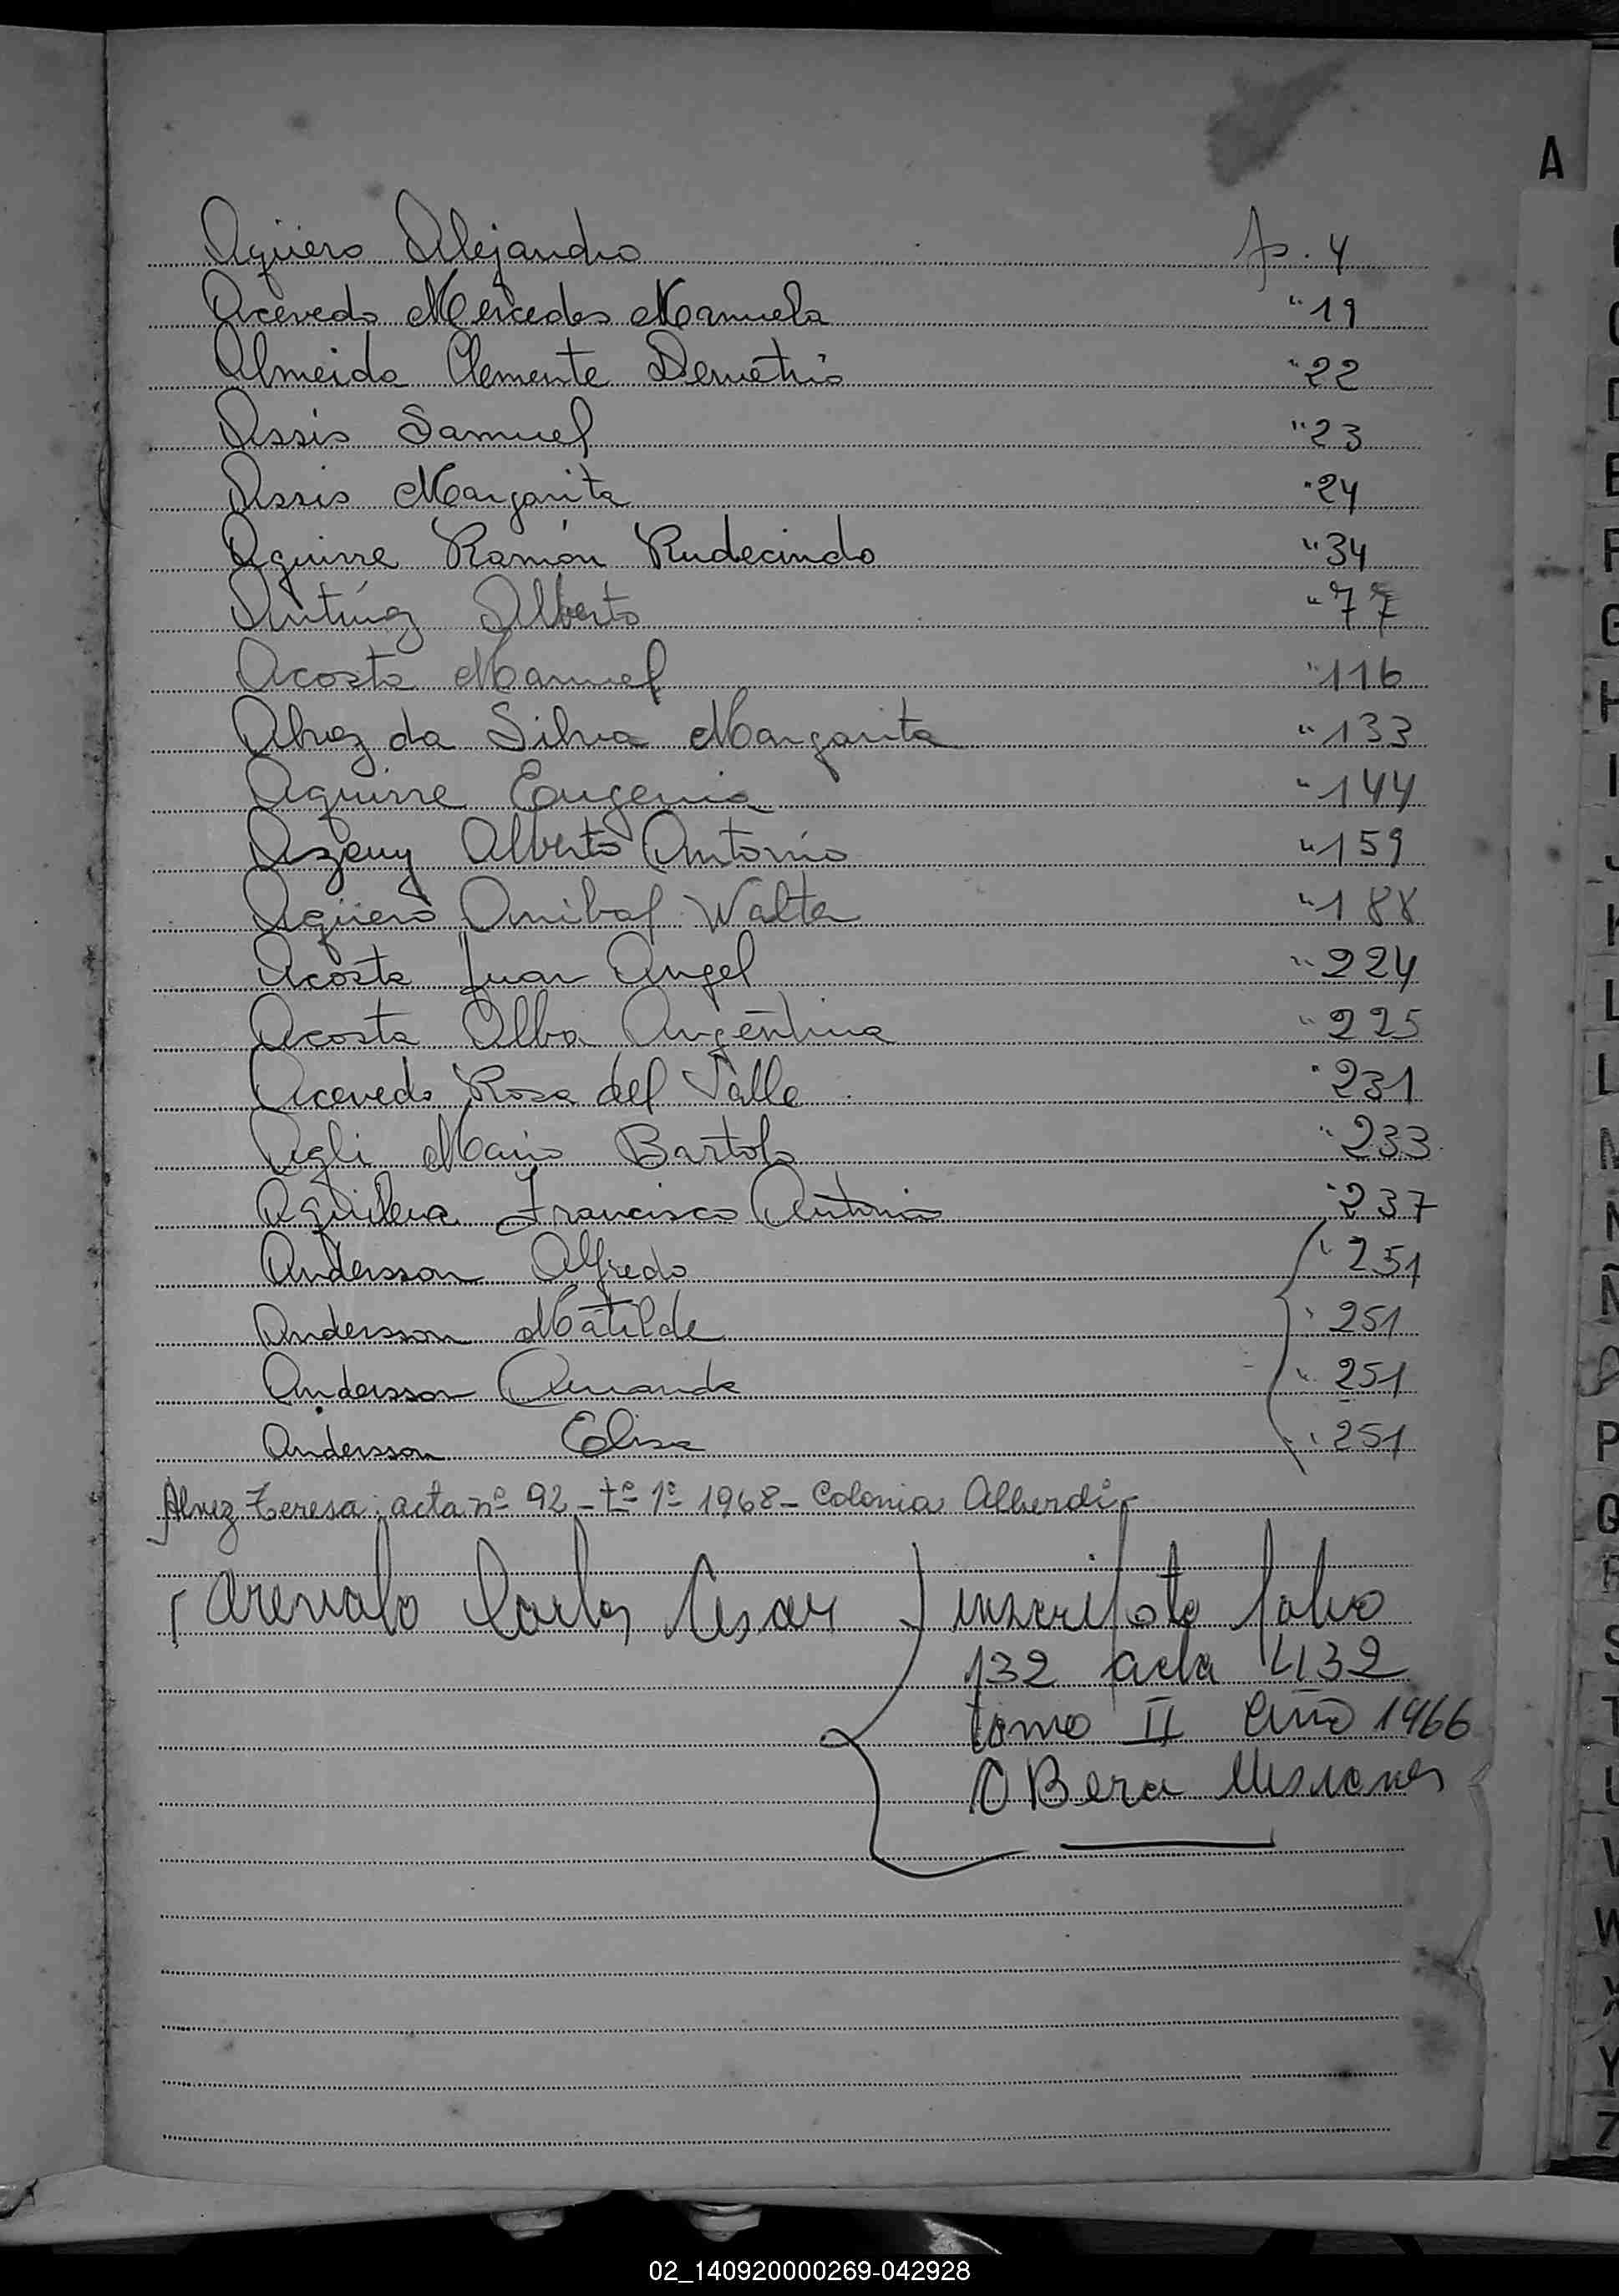 A
Agüero Alejandro fs. 4
Acevedo Mercedes Manuela " 19
Almeida Clemente Demetrio " 22
Assis Samuel " 23
Assis Margarita " 24
Aguirre Ramón Rudecindo " 34
Antúnez Alberto " 77
Acosta Manuel " 116
Alvez da Silva Margarita " 133
Aguirre Eugenia " 144
Azeuy Alberto Antonio " 159
Agüero Anibal Walter " 188
Acosta Juan Angel " 224
Acosta Alba Argentina " 225
Acevedo Rosa del Valle " 231
Agli Mario Bartolo " 233
Aguilera Francisco Antonio " 237
Andersson Alfredo " 251
Andersson Matilde " 251
Andersson Amanda " 251
Andersson Elisa " 251
Alvez Teresa: acta nº 92 - tº 1º 1968 - Colonia Alberdi -
Arevalo Carlos Cesar } inscripto folio
132 acta 4132
tomo II Año 1966
OBera Misiones
P
Q
W
Y
Z
02_140920000269-042928